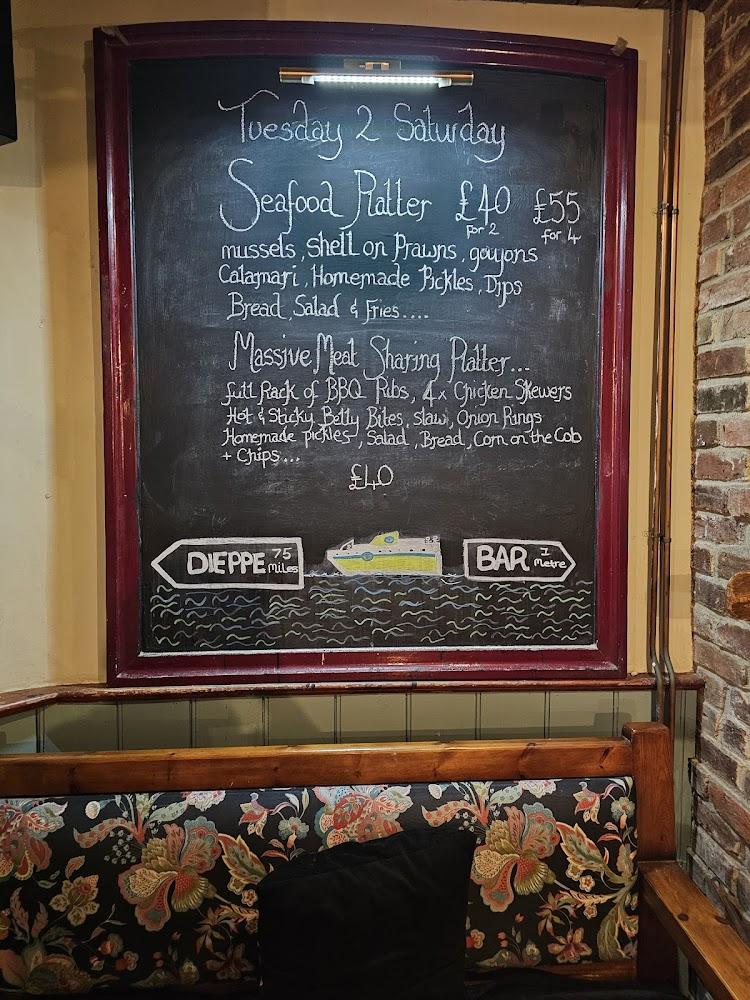 Tuesday 2 Saturday
Seafood Platter £40 £55
for 2 for 4
mussels, Shell on Prawns, goujons
Calamari, Homemade Pickles, Dips
Bread, Salad & Fries....
Massive Meat Sharing Platter...
full Rack of BBQ Ribs, 4x Chicken Skewers
Hot & Sticky Belly Bites, slaw, Onion Rings
Homemade pickles, Salad, Bread, Corn on the Cob
+ Chips...
£40
DIEPPE 75 Miles
BAR 1 Metre